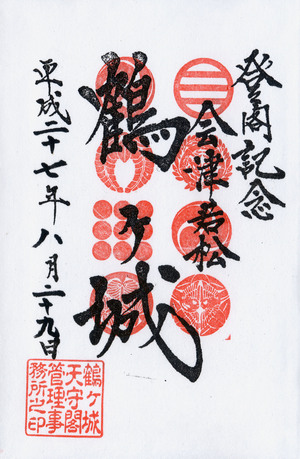 登閣記念
会津若松
鶴ヶ城
平成二十七年八月二十九日
鶴ヶ城
天守閣
管理事
務所之印